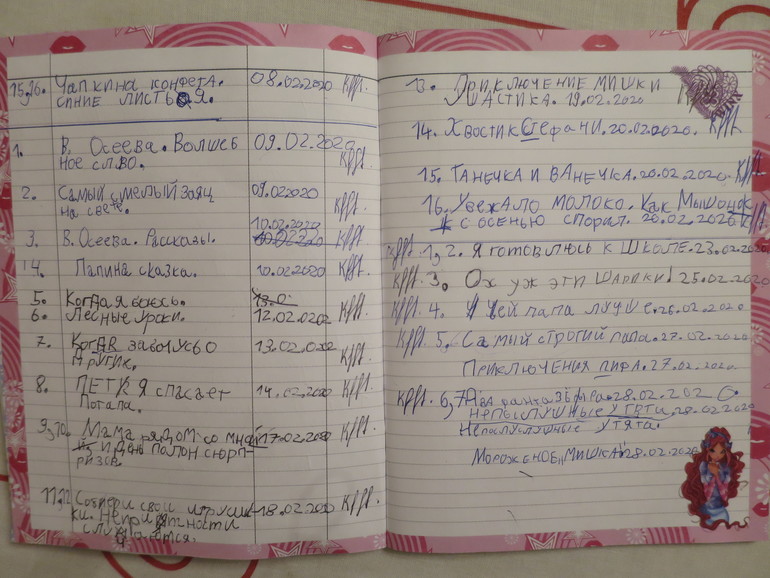 15,16. Чапкина конфета. 08.02.2020
синие листья.
1. В. Осеева. Волшеб 09.02.2020
ное слово.
2. Самый смелый заяц 09.02.2020
на свете.
10.02.2020
3. В. Осеева. Рассказы.
4. Папина сказка. 10.02.2020
5. Когда я боюсь.
6. Лесные уроки. 12.02.0202
7. Когда забочусь о 13.02.0202
других.
8. Петя спасает 14.02.2020
Потапа.
9,10. Мама рядом со мной 17.02.2020
и день полон сюрп-
ризов.
11,12 Собери свои игруш 18.02.2020
ки. Неприятности
случаются.
13. Приключение мишки
Ушастика. 19.02.2020
14. Хвостик Стефани. 20.02.2020.
15. Танечка и Ванечка. 20.02.2020.
16. Убежало молоко. Как Мышонок
с осенью спорил. 20.02.2020
1, 2. Я готовлюсь к школе. 23.02.2020
3. Ох уж эти шарики! 25.02.2020
4. Чей папа лучше. 26.02.2020
5. Самый строгий папа. 27.02.2020
Приключения пифа. 27.02.2020
6,7 Два рыназбфыра. 28.02.202 0.
Непослушные утята. 28.02.2020
Непослушные утята.
Мороженое „Мишка" 28.02.2020